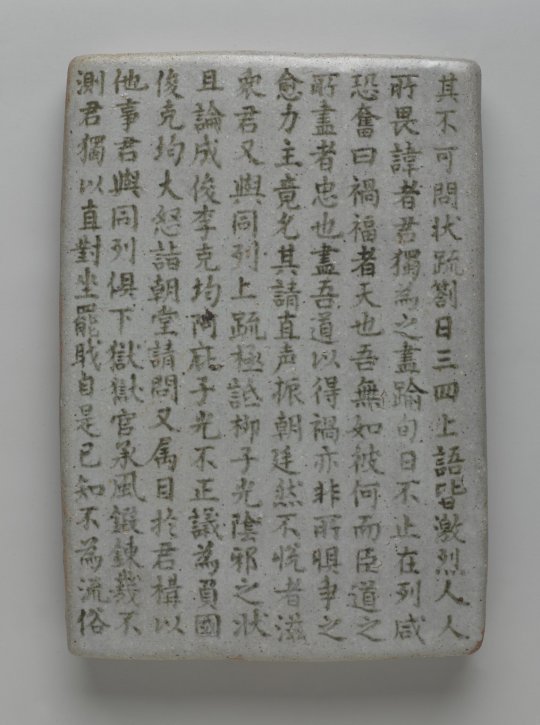 其不可問狀疏劄日三四上語皆激烈人人
所畏諱者君獨為之盡踰旬日不止在列咸
恐奮曰禍福者天也吾無如彼何而臣道之
所盡者忠也盡吾道以得禍亦非所恨爭之
愈力主竟允其請直声振朝廷然不悅者滋
衆君又與同列上疏極詆柳子光陰邪之狀
且論成俊李克均阿庇子光不正議為負國
俊克均大怒詣朝堂請問又属目於君構以
他事君與同列俱下獄獄官承風鍛鍊幾不
測君獨以直對坐罷職自是已知不為流俗